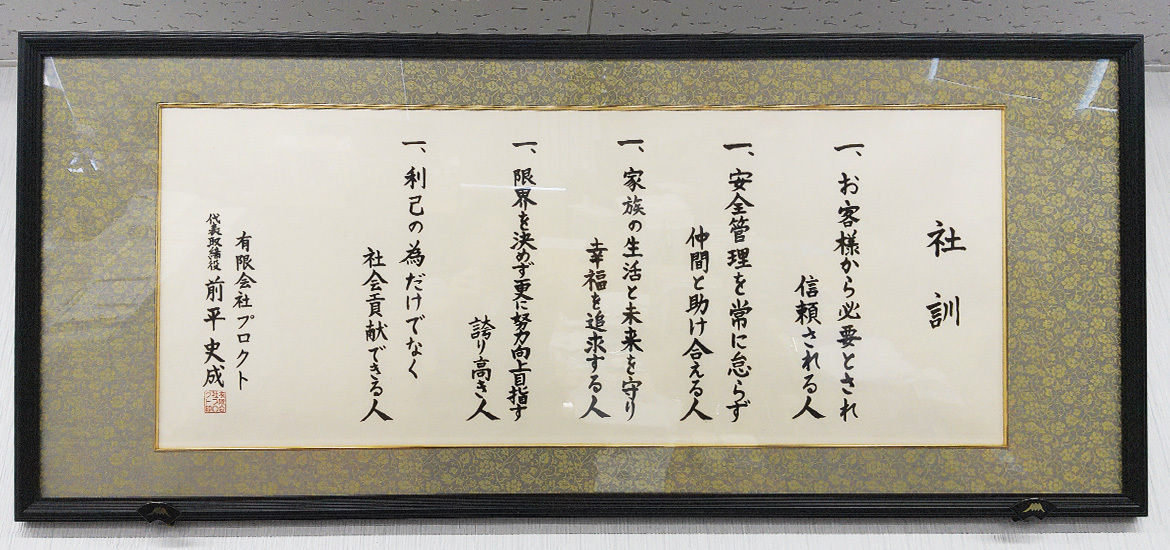 社訓
一、お客様から必要とされ
信頼される人
一、安全管理を常に怠らず
仲間と助け合える人
一、家族の生活と未来を守り
幸福を追求する人
一、限界を決めず更に努力向上目指す
誇り高き人
一、利己の為だけでなく
社会貢献できる人
有限会社プロクト
代表取締役 前平史成